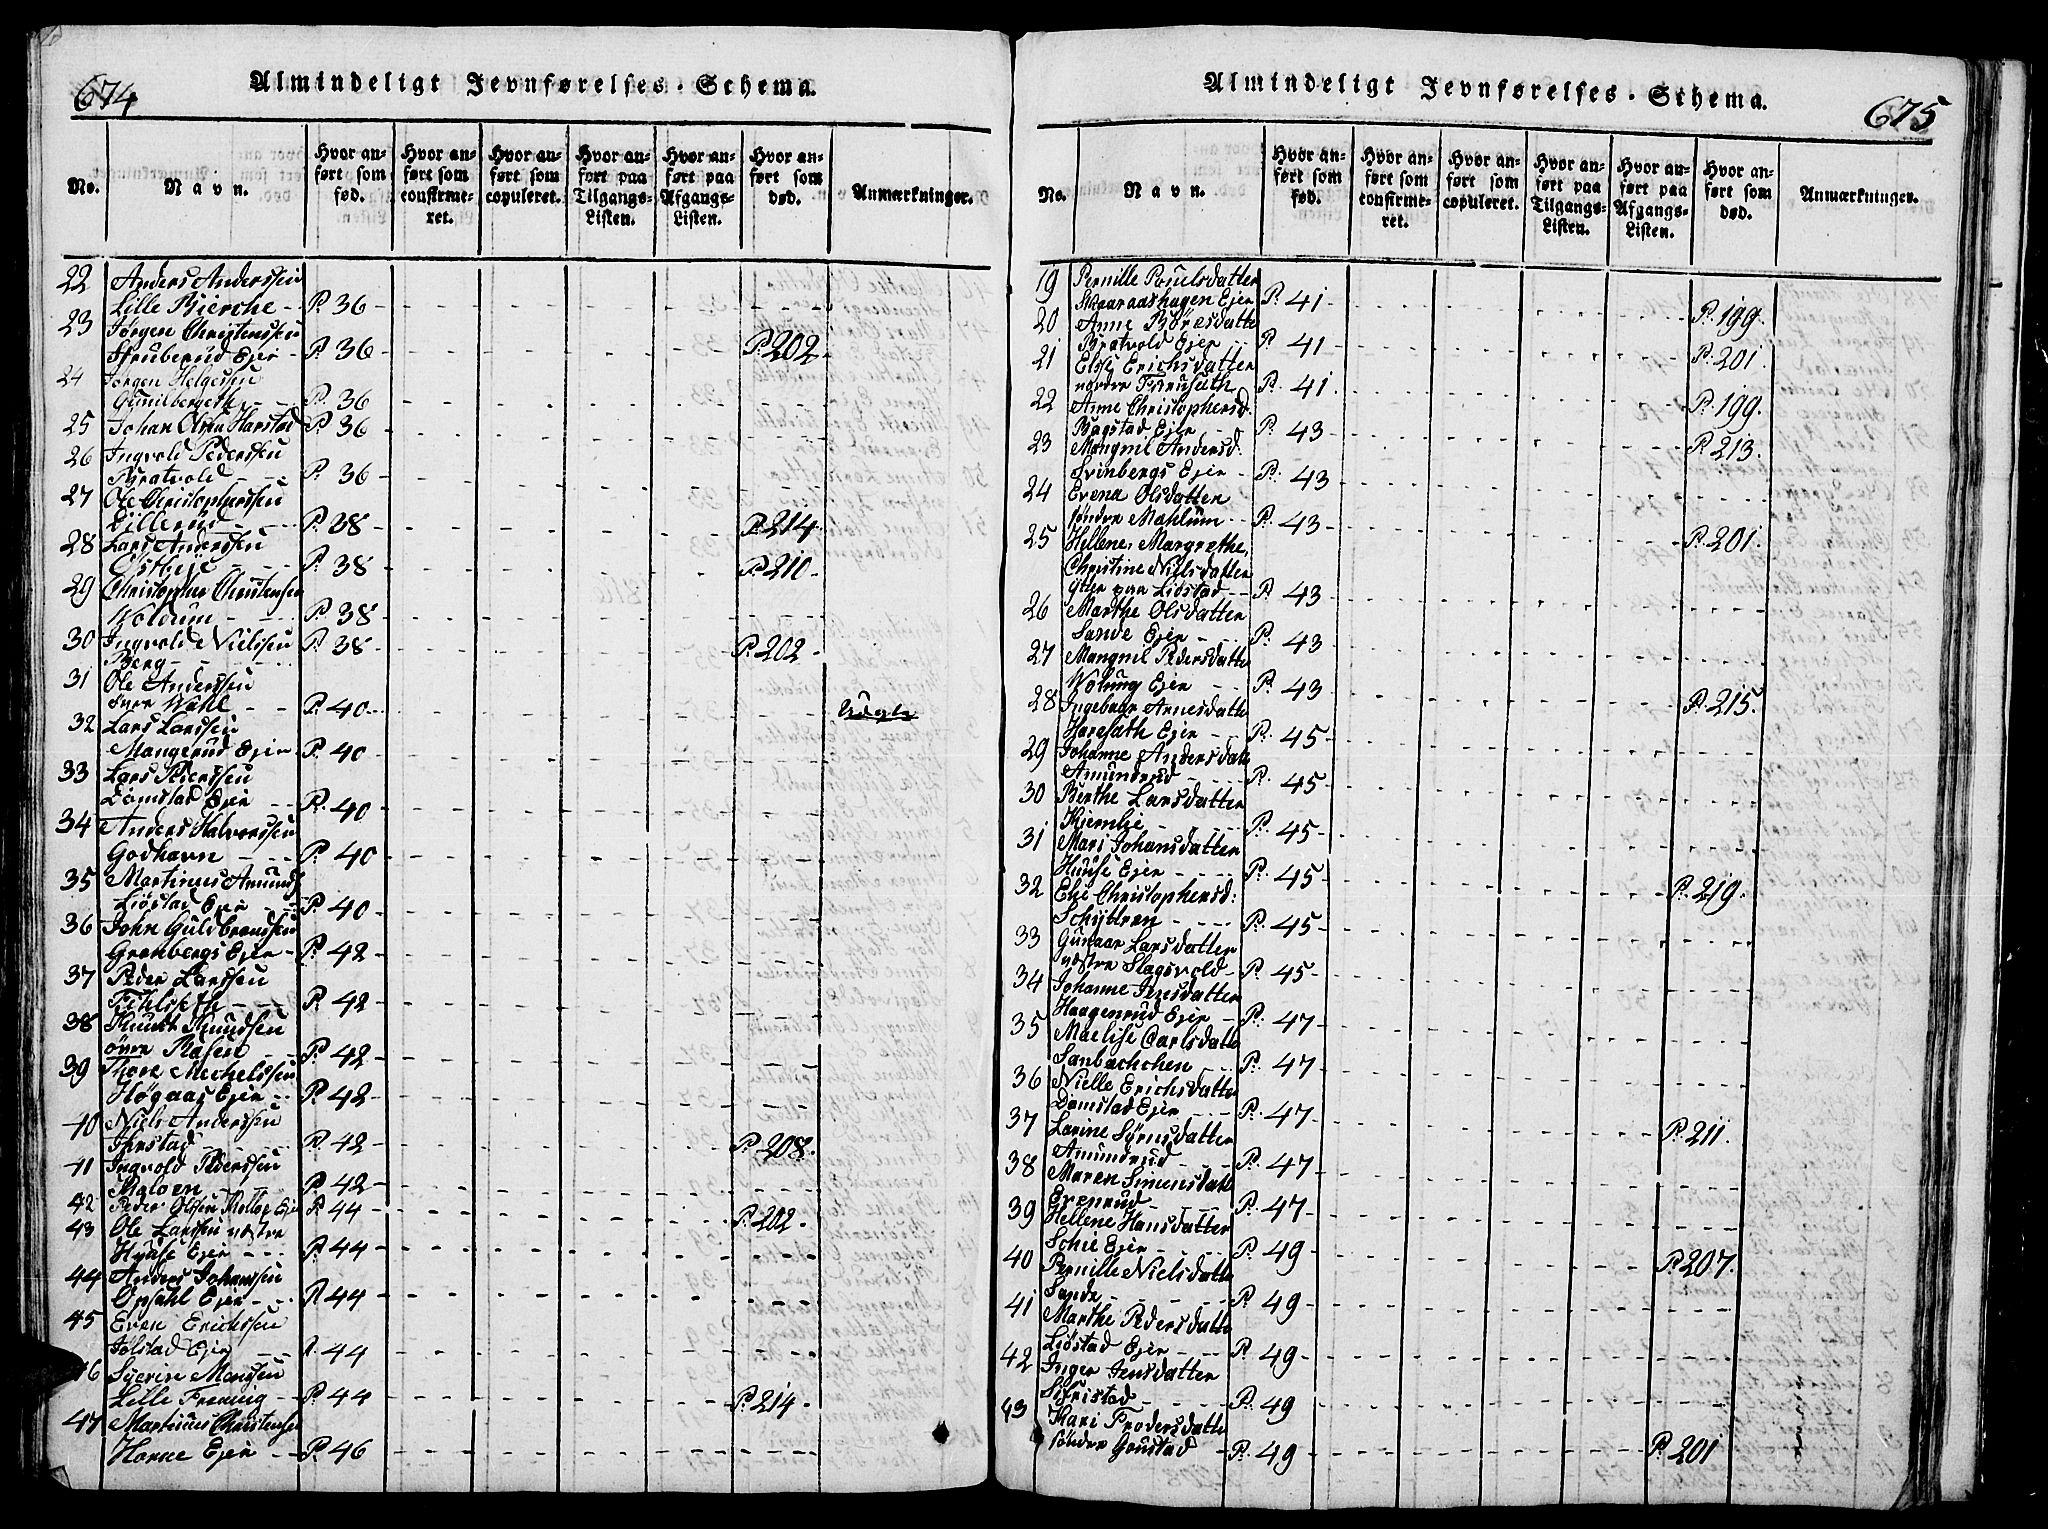 674
Almindeligt Jevnførelses-Schema.
No.
Navn.
Hvor anført som fød.
Hvor anført som confirmeret.
Hvor anført som copuleret.
Hvor anført paa Tilgangs-Listen.
Hvor anført paa Afgangs-Listen.
Hvor anført som død.
Anmærkninger.
22 Anders Anderssen
Lille Bierche P. 36
23 Jørgen Christenssen
Struberud Ejer P. 36 P. 202
24 Jørgen Helgessen
P. 36
25 Johan Olsen Harstad P. 36
26 Ingvold Pederssen
Bratvold P. 36
27 Ole Christopherssen
Lillerud P. 38 P. 214
28 Lars Anderssen
Østbye P. 38 P. 210
29 Christopher Christensen
Woldum P. 38
30 Ingvold Nielssen P. 38 P. 202
Berg
31 Ole Anderssen
øvre Wahl P. 40
32 Lars Larssen
Mangerud Ejer P. 40
33 Lars Pederssen
Domstad Ejer P. 40
34 Anders Halvorssen
Godhavn P. 40
35 Martinus Amunds
Liøstad Ejer P. 40
36 John Guldbrandssen
Grønbergs Ejer P. 42
37 Peder Larssen
P. 42
38 Knudt Knudsen
øvre P. 42
39 Thore Michelssen
Høgaas Ejer P. 42
40 Niels Anderssen
P. 42 P. 208
41 Ingvold Pederssen
P. 42
42 Peder Olsen Ejer P. 44 P. 202
43 Ole Larssen vestre
Hquse Ejer P. 44
44 Anders Johanssen
Opsahl Ejer P. 44
45 Even Erichssen
Jølstad Ejer P. 44
46 Syverin Monssen
Lille Frennig P. 44 P. 214
47 Martinus Christensen
Horne Ejer P. 46
675
Almindeligt Jevnførelses-Schema.
No.
Navn.
Hvor anført som fød.
Hvor anført som confirmeret.
Hvor anført som copuleret.
Hvor anført paa Tilgangs-Listen.
Hvor anført paa Afgangs-Listen.
Hvor anført som død.
Anmærkninger.
19 Pernille Poulsdatter
Skaaraashagen Ejer P. 41 P. 199
20 Anne
Bratvold Ejer P. 41 P. 201
21 Else Erichsdatter
nordre P. 41 P. 199
22 Anne Christophersd.
Bagstad Ejer P. 43 P. 213
23 Mangnil Andersd.
Svinbergs Ejer P. 43
24 Evena Olsdatter
søndre Mahlum P. 43 P. 201
25 Hellene Margrethe
Christine Nielsdatter
Liøstad P. 43
26 Marthe Olsdatter
Sande Ejer P. 43
27 Mangnil Pedersdatter
Wolung Ejer P. 43 P. 215
28 Ingeboer Arnesdatter
Ejer P. 45
29 Johanne Andersdatter
Amundrud P. 45
30 Berthe Larsdatter
Kiernlie P. 45
31 Mari Johansdatter
Huuse Ejer P. 45 P. 219
32 Else Christophersd:
Schyttren P. 45
33 Gunaar Larsdatter
vestre Slagsvold P. 45
34 Johanne Jensdatter
Haagenrud Ejer P. 47
35 Maelise Carlsdatter
Sanbachchen P. 47
36 Nielle Erichsdatter
Domstad Ejer P. 47 P. 211
37 Larine Sørensdatter
Amundrud P. 47
38 Maren Simensdatter
Evenrud P. 47
39 Hellene Hansdatter
Schie Ejer P. 49 P. 207
40 Pernille Nielsdatter
Sande P. 49
41 Marthe Pedersdatter
Liøstad Ejer P. 49
42 Inger Jensdatter
Sigristad P. 49
43 Kari Frodersdatter
søndre Gaustad P. 49 P. 201